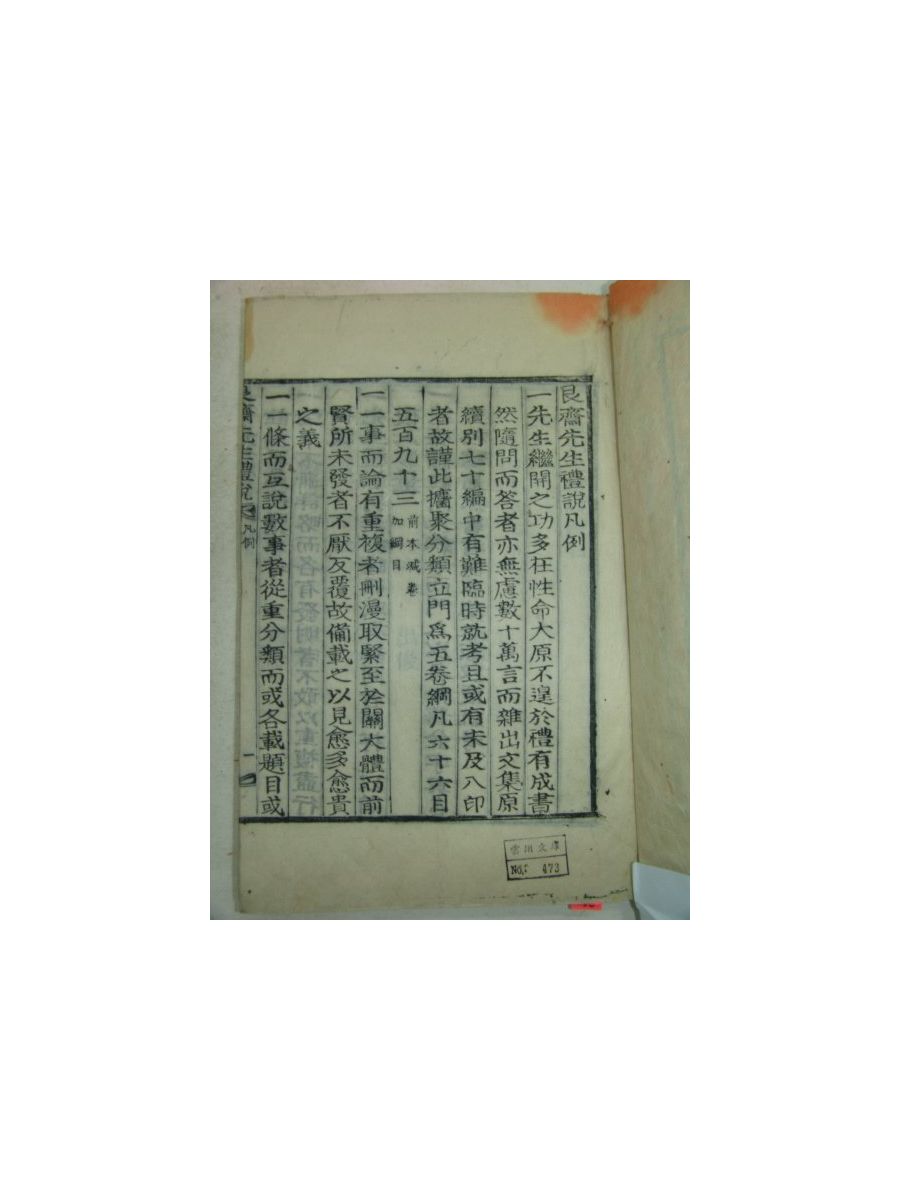 艮齋先生禮說凡例
一先生繼開之功多在性命大原不遑於禮有成書
然隨問而答者亦無慮數十萬言而雜出文集原
續別七十編中有難臨時就考且或有未及入印
者故謹此攟聚分類立門爲五卷綱凡六十六目
五百九十三
前本减卷
加綱目
一一事而論有重複者刪漫取緊至於關大體而前
賢所未發者不厭反覆故備載之以見愈多愈貴
之義
一一條而互說數事者從重分類而或各載題目或
艮齋先生禮說
凡例
一
文庫
No. 473